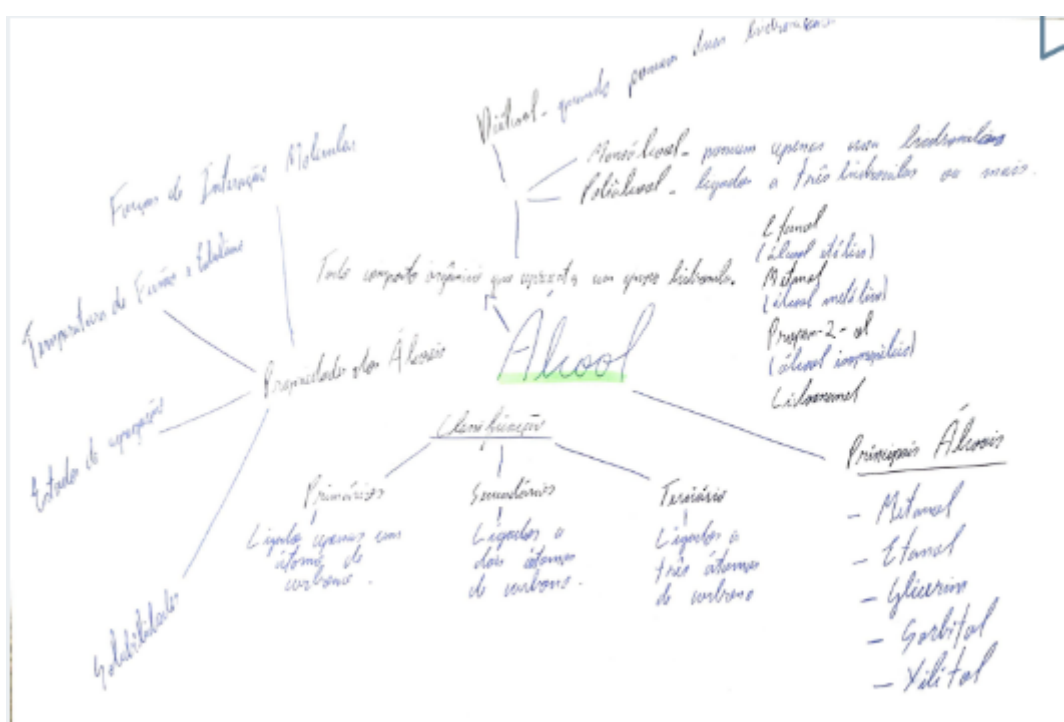 Diálcool - quando possuem duas hidroxilas
Monoálcool - possuem apenas uma hidroxila
Poliálcool - ligados a três hidroxilas ou mais.
Forças de Interação Molecular
Temperatura de Fusão e Ebulição
Estados de agregação
Solubilidade
Propriedades dos Álcoois
Todo composto orgânico que apresenta um grupo hidroxila.
Álcool
Etanol
(álcool etílico)
Metanol
(álcool metílico)
Propan-2-ol
(álcool isopropílico)
Classificação
Primários
Ligado apenas um
átomo de
carbono.
Secundários
Ligados a
dois átomos
de carbono.
Terciário
Ligados a
três átomos
de carbono
Principais Álcoois
- Metanol
- Etanol
- Glicerina
- Sorbitol
- Xilitol